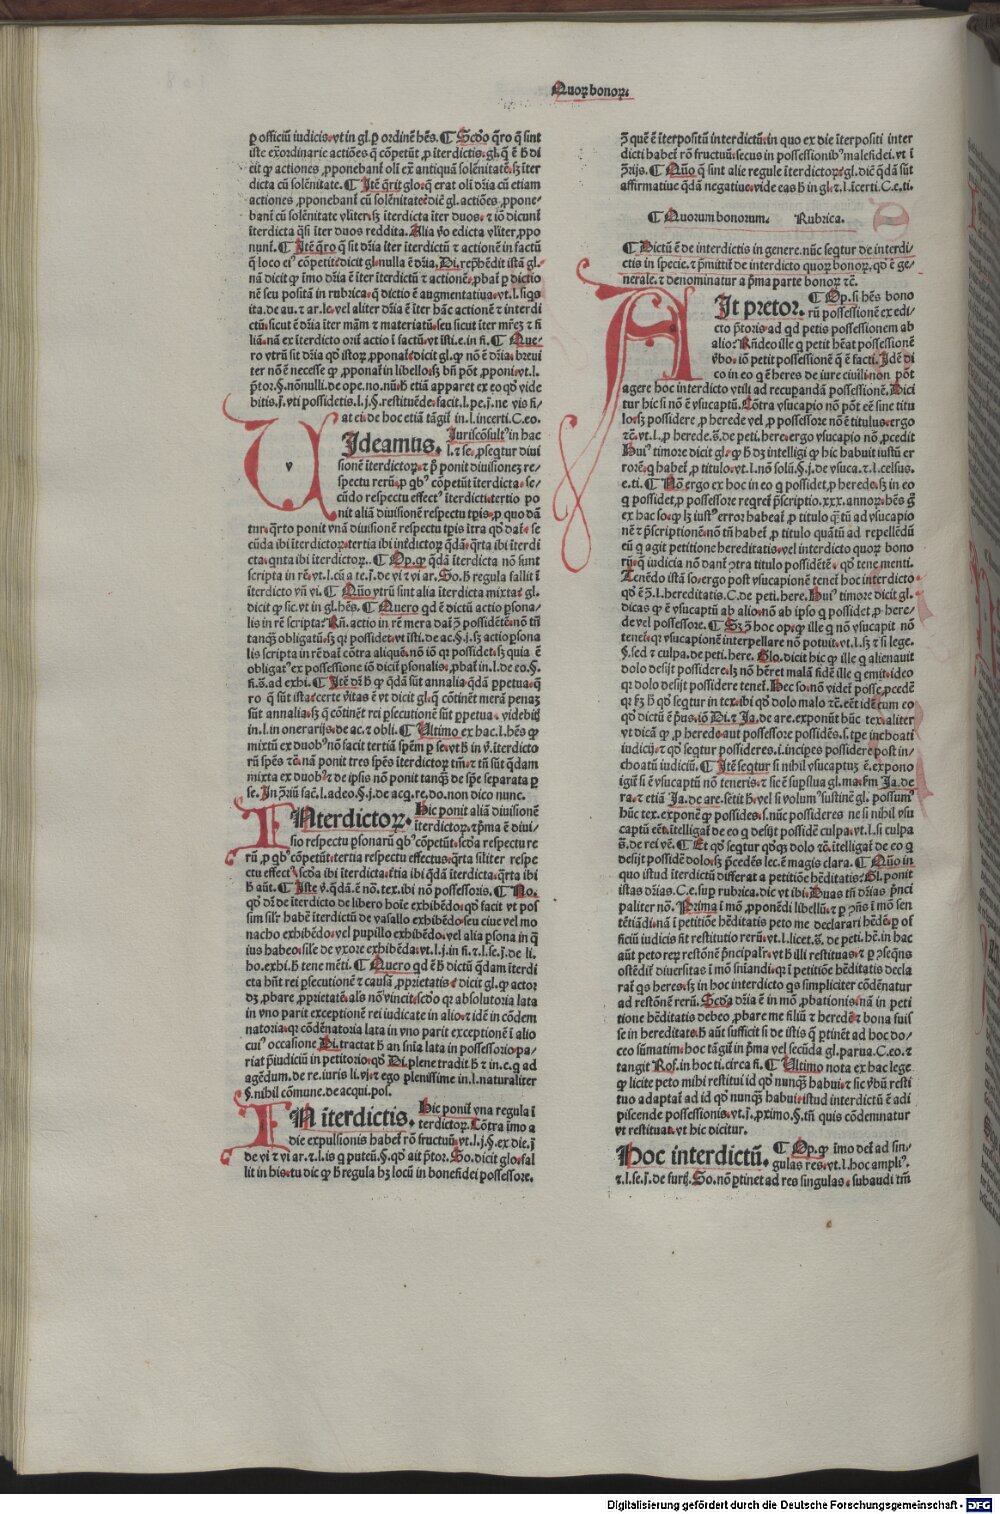 Quoꝝ bonoꝝ.
ꝑ officiū iudicis. vt in gl. ꝑ ordinē hēs. ¶ Scḋo q̄ro q̄ sint
iste exordinarie actiōes q̄ cōpetūt ꝓ īterdictis. gl. q̄ ē ħ di
cit ꝙ actiones ꝓponebant olī ex antiqua solēnitate. sꝫ īter
dicta cū solēnitate. ¶ Itē q̄rit glo. q̄ erat olī dr̄ia cū etiam
actiones ꝓponebant cū solēnitate: diē gl. actiōes ꝓpone-
bant cū solēnitate vliter. sꝫ īterdicta īter duos. ⁊ iō dicunt̄
īterdicta q̄si īter duos reddita. Alia v̄o edicta vliter ꝓpo
nunt̄. ¶ Itē q̄ro q̄ sit dr̄ia īter īterdictū ⁊ actionē in factū
q̄ loco eiꝰ cōpetit: dicit gl. nulla ē dr̄ia. Di. rep̄hēdit istā gl.
nā dicit ꝙ imo dr̄ia ē īter īterdictū ⁊ actionē. ꝓbat̄ ꝑ dictio
nē seu positā in rubrica. q̄ dictio ē augmentatiua. vt. l. siqs
ita. de au. ⁊ ar. le. vel aliter dr̄ia ē īter hāc actionē ⁊ interdi
ctū. sicut ē dr̄ia īter mām ⁊ materiatū. seu sicut īter mr̄eꝫ ⁊ fi
liā. nā ex īterdicto orit̄ actio ī factū. vt īsti. e. in fi. ¶ Que-
ro vtrū sit dr̄ia qḋ istoꝝ ꝓponat̄: dicit gl. ꝙ nō ē dr̄ia. breui
ter nō ē necesse ꝙ ꝓponat̄ in libello. sꝫ bn̄ pōt ꝓponi. vt. l.
p̄tor. §. nōnulli. de ope. no. nū. ħ etiā apparet ex eo qḋ vide
bitis. j̄. vti possidetis. l. j. §. restituēde. facit. l. pe. j̄. ne vis fi-
at ei. de hoc etiā tāgit̄ in. l. incerti. C. eo.
VIdeamus. Iuriscōsultꝰ in hac
l. ⁊ se. ꝓseqtur diui
sionē īterdictoꝝ. ⁊ p̄ ponit diuisioneꝫ re-
spectu rerū. ꝓ qbꝰ cōpetūt īterdicta. se-
cūdo respectu effectꝰ īterdicti. tertio po
nit aliā diuisionē respectu tp̄is. ꝓ quo dā
tur. q̄rto ponit vnā diuisionē respectu tp̄is ītra qḋ dat̄. se
cūda ibi īterdictoꝝ. tertia ibi intēdictoꝝ q̄dā. q̄rta ibi īterdi
cta. qnta ibi īterdictoꝝ. ¶ Op. ꝙ q̄dā īterdicta nō sunt
scripta in rē. vt. l. cū a te. j̄. de vi ⁊ vi ar. So. ħ regula fallit ī
īterdicto vn̄ vi. ¶ Qn̄o vtrū sint alia īterdicta mixta: gl.
dicit ꝙ sic. vt in gl. hēs. ¶ Quero qd ē dictū actio ꝑsona-
lis in rē scripta: Rn̄. actio in rē mera dat̄ ꝯ̄ possidētē. nō tn̄
tanqꝫ obligatū. sꝫ qꝛ possidet. vt īsti. de ac. §. j. sꝫ actio ꝑsona
lis scripta in rē dat̄ cōtra aliquē. nō iō qꝛ possidet. sꝫ quia ē
obligatꝰ ex possessione iō dicit̄ ꝑsonalis. ꝓbat̄ in. l. de eo. §.
fi. s̄. ad exhi. ¶ Itē dr̄ ħ ꝙ q̄dā sūt annalia. q̄dā ꝑpetua. q̄
ro q̄ sūt ista: certe v̄itas ē vt dicit gl. q̄ cōtinēt merā penaꝫ
sūt annalia. sꝫ q̄ cōtinēt rei ꝑsecutionē sūt ꝑpetua. videbiꝭ
in. l. in onerarijs. de ac. ⁊ obli. ¶ Ultimo ex hac. l. hēs ꝙ
mixtū ex duobꝰ nō facit tertiā spēm ꝑ se. vt ħ in v̄. īterdicto
rū spēs ⁊c̄. nā ponit tres spēs īterdictoꝝ tm̄. ⁊ tn̄ sūt q̄dam
mixta ex duobꝰ ⁊ de ipsis nō ponit tanqꝫ de sp̄e separata ꝑ
se. In ꝯ̄riū facē. l. adeo. §. j. de acq. re. do. non dico nunc.
INterdictoꝝ. Hic ponit aliā diuisionē
īterdictoꝝ. ⁊ p̄ma ē diui-
sio respectu ꝑsonarū qbꝰ cōpetūt. scḋa respectu re
rū ꝓ qbꝰ cōpetūt. tertia respectu effectus. q̄rta siliter respe
ctu effectꝰ. scḋa ibi īterdicta. ētia ibi qdā īterdicta. q̄rta ibi
ħ aūt. ¶ Iste v̄. q̄dā. ē nō. tex. ibi nō possessoris. ¶ No.
qḋ dn̄ de īterdicto de libero hoīe exhibēdo. qḋ facit vt pos
sim silr̄ habē īterdictū de vasallo exhibēdo. seu ciue vel mo
nacho exhibēdo. vel pupillo exhibēdo. vel alia ꝑsona in q̄
ius habeo. sile de vxore exhibēda. vt. l. j. in fi. ⁊ l. se. j̄. de li.
ho. exhi. ħ tene mēti. ¶ Quero qd ē ħ dictū q̄dam īterdi
cta hn̄t rei ꝑsecutionē ⁊ causā ꝓprietatis: dicit gl. ꝙ actor
dꝫ ꝓbare ꝓprietatē. als nō vincit. scḋo qꝛ absolutoria lata
in vno parit exceptionē rei iudicate in alio. ⁊ idē in cōdem
natoria. qꝛ cōdēnatoria lata in vno parit exceptionē ī alio
cuiꝰ occasione Di. tractat ħ an sn̄ia lata in possessorio pa-
riat p̄iudiciū in petitorio. qḋ Di. plene tradit ħ ⁊ in. c. q̄ ad
agēdum. de re. iuris li. vj. ⁊ ego plenissime in. l. naturaliter
§. nihil cōmune. de acqui. pos.
IN īterdictis. Hic ponit̄ vna regula ī
terdictoꝝ. Cōtra īmo a
die expulsionis habet̄ rō fructuū. vt. l. j. §. ex die. j̄.
de vi ⁊ vi ar. ⁊. l. is q puteū. §. qḋ ait p̄tor. So. dicit glo. fal
lit in his. tu dic ꝙ ħ regula hꝫ locū in bonefidei possessore.
ꝯ̄ quē ē īterpositū interdictū. in quo ex die īterpositi inter
dicti habet̄ rō fructuū. secus in possessionibꝰ malefidei. vt ī
ꝯ̄rijs. ¶ Qn̄o q̄ sint alie regule īterdictoꝝ: gl. diē q̄dā sūt
affirmatiue q̄dā negatiue. vide eas ħ in gl. ⁊. l. īcerti. C. e. ti.
¶ Quorum bonorum. Rubrica.
¶ Dictū ē de interdictis in genere. nūc seqtur de interdi-
ctis in specie. ⁊ p̄mittit̄ de interdicto quoꝝ bonoꝝ. qḋ ē ge-
nerale. ⁊ denominatur a p̄ma parte bonoꝝ ⁊c̄.
AIt pretor. ¶ Op. si hēs bono
rū possessionē ex edi-
cto p̄toris. ad qd petis possessionem ab
alio: Rn̄deo ille q petit hēat possessionē
v̄bo. iō petit possessionē q̄ ē facti. Idē di
co in eo q ē heres de iure ciuili. non pōt
agere hoc interdicto vtili ad recupandā possessionē. Dici
tur hic si nō ē vsucaptū. Cōtra vsucapio nō pōt eē sine titu
lo. sꝫ possidere ꝓ herede vel ꝓ possessore nō ē titulus. ergo
⁊c̄. vt. l. ꝓ herede. s̄. de peti. here. ergo vsucapio nō ꝓcedit
Huiꝰ timore dicit gl. ꝙ ħ dꝫ intelligi ꝙ hic habuit iustū er
rorē. q̄ habet̄ ꝓ titulo. vt. l. nō solū. §. j. de vsuca. ⁊. l. celsus.
e. ti. ¶ Nō ergo ex hoc in eo q possidet ꝓ herede. sꝫ in eo
q possidet ꝓ possessore reqret̄ p̄scriptio. xxx. annoꝝ. hēs g̊
ex hac so. ꝙ lꝫ iustꝰ error habeat̄ ꝓ titulo q̄tū ad vsucapio
nē ⁊ p̄scriptionē. nō tn̄ habet̄ ꝓ titulo quātū ad repellēdū
eū q agit petitione hereditatis. vel interdicto quoꝝ bono
rū. q̄ iudicia nō dant̄ ꝯtra titulo possidētē. qḋ tene menti.
Tenēdo istā so. ergo post vsucapionē tenet̄ hoc interdicto
qḋ ē ꝯ̄. l. hereditatis. C. de peti. here. Huiꝰ timore dicit gl.
dicas ꝙ ē vsucaptū ab alio. nō ab ipso q possidet ꝓ here-
de vel possessore. ¶ Sꝫ ꝯ̄ hoc op. ꝙ ille q nō vsucapit nō
tenet̄. qꝛ vsucapionē interpellare nō potuit. vt. l. sꝫ ⁊ si lege.
§. sed ⁊ culpa. de peti. here. Glo. dicit hic ꝙ ille q alienauit
dolo desijt possidere. lꝫ nō hēret malā fidē ille q emit. ideo
qꝛ dolo desijt possidere tenet̄. Hec so. nō videt̄ posse ꝓcedē
qꝛ ẜꝫ ħ qḋ seqtur in tex. ibi qḋ dolo malo ⁊c̄. eēt idē cum eo
qḋ dictū ē p̄us. iō Di. ⁊ Ja. de are. exponūt hūc tex. aliter
vt dicā ꝙ ꝓ herede aut possessore possidēs. s. tp̄e inchoati
iudicij. ⁊ qḋ seqtur possideres. i. incipes possidere post in-
choatū iudiciū. ¶ Itē seqtur si nihil vsucaptuꝫ ē. expono
igit̄ si ē vsucaptū nō teneris. ⁊ sic ē supflua gl. ma. ẜm Ja. de
ra. ⁊ etiā Ja. de are. sētit ħ. vel si volumꝰ sustinē gl. possumꝰ
hūc tex. exponē ꝙ possides. s. nūc possideres ne si nihil vsu
captū eēt. itelligat̄ de eo q desijt possidē culpa. vt. l. si culpa
s̄. de rei vē. ¶ Et qḋ seqtur qḋqꝫ dolo ⁊c̄. itelligat̄ de eo q
desijt possidē dolo. sꝫ p̄cedēs lec. ē magis clara. ¶ Qn̄o in
quo istud īterdictū differat a petitiōe hēditatis: Gl. ponit
istas dr̄ias. C. e. suꝑ rubrica. dic vt ibi. Duas tn̄ dr̄ias p̄nci
paliter nō. Prima ī mō ꝓponēdi libellū. ⁊ ꝑ ꝯn̄s ī mō sen
tētiādi. nā ī petitiōe hēditatis peto me declarari hēdē. ꝑ of
ficiū iudicis fit restitutio rerū. vt. l. licet. s̄. de peti. hē. in hac
aūt peto rerꝫ restōnē p̄ncipalr̄. vt ħ illi restituas. ⁊ ꝑ ꝯseqns
ostēdit̄ diuersitas ī mō sn̄iandi. qꝛ ī petitiōe hēditatis decla
rat̄ qs heres. sꝫ in hoc interdicto qs simpliciter cōdēnatur
ad restōnē rerū. Scḋa dr̄ia ē in mō ꝓbationis. nā in peti
tione hēditatis debeo ꝓbare me filiū ⁊ heredē. ⁊ bona fuis
se in hereditate. ħ aūt sufficit si de istis q̄ ꝑtinēt ad hoc do-
ceo sūmatim. hoc tāgit̄ in p̄ma vel secūda gl. parua. C. eo. ⁊
tangit Rof. in hoc ti. circa fi. ¶ Ultimo nota ex hac lege
ꝙ licite peto mihi restitui id qḋ nunqꝫ habui. ⁊ sic v̄bū resti
tuo adaptat̄ ad id qḋ nunqꝫ habui. istud interdictū ē adi
piscende possessionis. vt. j̄. ꝓximo. §. tn̄ quis cōdemnatur
vt restituat. vt hic dicitur.
Hoc interdictū. ¶ Op. ꝙ imo det̄ ad sin-
gulas res. vt. l. hoc ampliꝰ.
⁊. l. se. j̄. de furtꝭ. So. nō ꝑtinet ad res singulas. subaudi tm̄
Digitalisierung gefördert durch die Deutsche Forschungsgemeinschaft - DFG